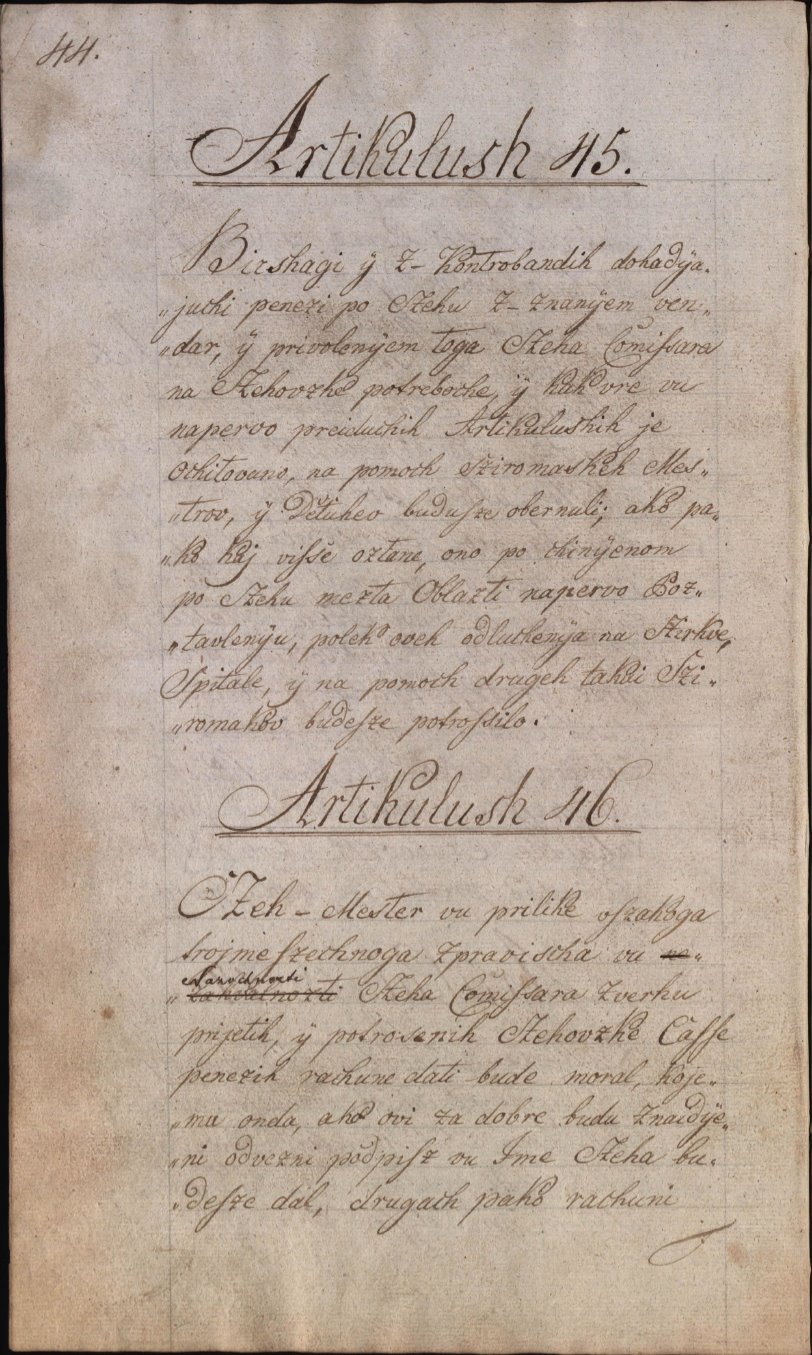 44.
Artikulush 45.
Birshagi ÿ z- Kontrobandih dohadÿa„
„juchi penezi po Czehu z- znanÿem ven„
„dar, ÿ privolenÿem toga Czeha Com̃issara
na Czehovzke potreboche, ÿ kak vre vu
napervo preiduchih Artikulushih je
Ochitovano, na pomoch Sziromaskeh Mes„
„trov, ÿ Detichev budusze obernuli; ako pa„
„ko kaj visse oztane, ono po chinÿenom
po Czehu mezta Oblazti napervo Poz„
„tavlenÿu, polek oveh odluchenÿa na Czirkve,
Spitale, ÿ na pomoch drugeh takvi Szi„
„romakov budesze potrossilo.
Artikulush 46.
Czeh - Mester vu prilike vszakoga
trojmeszechnoga zpravischa vu na„
Navochnozti
Czeha Com̃issara zverhu
prijetih, ÿ potrosenih Czehovzke Casse
penezih rachune dati bude moral, koje„
„mu onda, ako ovi za dobre budu znaidÿe„
„ni odvezni podpisz vu Ime Czeha bu„
„desze dal, drugach pako rachuni